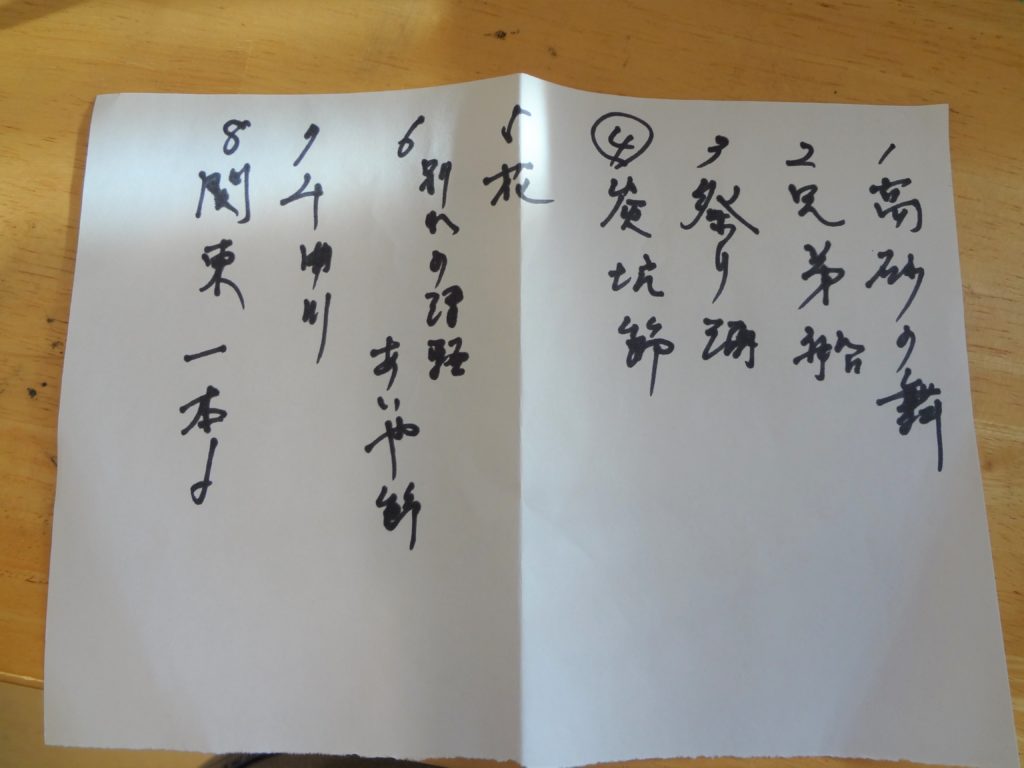 1 高砂の舞
2 兄弟船
3 祭り踊
④ 炭坑節
5 花
6 別れの理
あいや節
7
8 関東一本〆